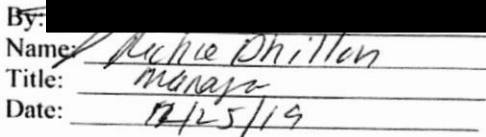 By:
Name: Richie Dhillon
Title: Manager
Date: 12/25/19